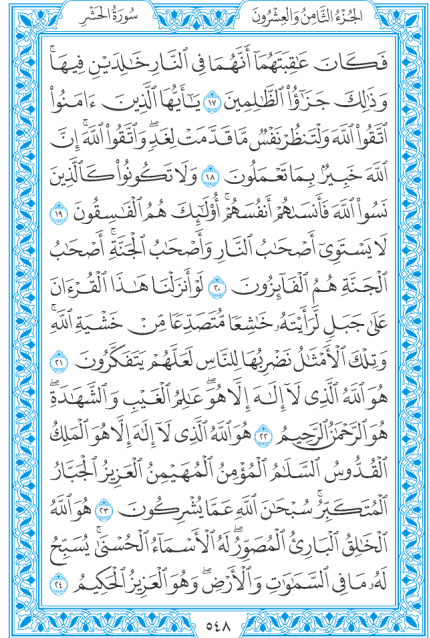 الجُزْءُ الثَّامِنُ وَالعِشْرُونَ سُورَةُ الحَشْرِ
فَكَانَ عَٰقِبَتَهُمَآ أَنَّهُمَا فِي ٱلنَّارِ خَٰلِدَيۡنِ فِيهَاۚ
وَذَٰلِكَ جَزَٰٓؤُاْ ٱلظَّٰلِمِينَ ١٧ يَٰٓأَيُّهَا ٱلَّذِينَ ءَامَنُواْ
ٱتَّقُواْ ٱللَّهَ وَلۡتَنظُرۡ نَفۡسٞ مَّا قَدَّمَتۡ لِغَدٖۖ وَٱتَّقُواْ ٱللَّهَۚ إِنَّ
ٱللَّهَ خَبِيرُۢ بِمَا تَعۡمَلُونَ ١٨ وَلَا تَكُونُواْ كَٱلَّذِينَ
نَسُواْ ٱللَّهَ فَأَنسَىٰهُمۡ أَنفُسَهُمۡۚ أُوْلَٰٓئِكَ هُمُ ٱلۡفَٰسِقُونَ ١٩
لَا يَسۡتَوِيٓ أَصۡحَٰبُ ٱلنَّارِ وَأَصۡحَٰبُ ٱلۡجَنَّةِۚ أَصۡحَٰبُ
ٱلۡجَنَّةِ هُمُ ٱلۡفَآئِزُونَ ٢٠ لَوۡ أَنزَلۡنَا هَٰذَا ٱلۡقُرۡءَانَ
عَلَىٰ جَبَلٖ لَّرَأَيۡتَهُۥ خَٰشِعٗا مُّتَصَدِّعٗا مِّنۡ خَشۡيَةِ ٱللَّهِۚ
وَتِلۡكَ ٱلۡأَمۡثَٰلُ نَضۡرِبُهَا لِلنَّاسِ لَعَلَّهُمۡ يَتَفَكَّرُونَ ٢١
هُوَ ٱللَّهُ ٱلَّذِي لَآ إِلَٰهَ إِلَّا هُوَۖ عَٰلِمُ ٱلۡغَيۡبِ وَٱلشَّهَٰدَةِۖ
هُوَ ٱلرَّحۡمَٰنُ ٱلرَّحِيمُ ٢٢ هُوَ ٱللَّهُ ٱلَّذِي لَآ إِلَٰهَ إِلَّا هُوَ ٱلۡمَلِكُ
ٱلۡقُدُّوسُ ٱلسَّلَٰمُ ٱلۡمُؤۡمِنُ ٱلۡمُهَيۡمِنُ ٱلۡعَزِيزُ ٱلۡجَبَّارُ
ٱلۡمُتَكَبِّرُۚ سُبۡحَٰنَ ٱللَّهِ عَمَّا يُشۡرِكُونَ ٢٣ هُوَ ٱللَّهُ
ٱلۡخَٰلِقُ ٱلۡبَارِئُ ٱلۡمُصَوِّرُۖ لَهُ ٱلۡأَسۡمَآءُ ٱلۡحُسۡنَىٰۚ يُسَبِّحُ
لَهُۥ مَا فِي ٱلسَّمَٰوَٰتِ وَٱلۡأَرۡضِۖ وَهُوَ ٱلۡعَزِيزُ ٱلۡحَكِيمُ ٢٤
٥٤٨